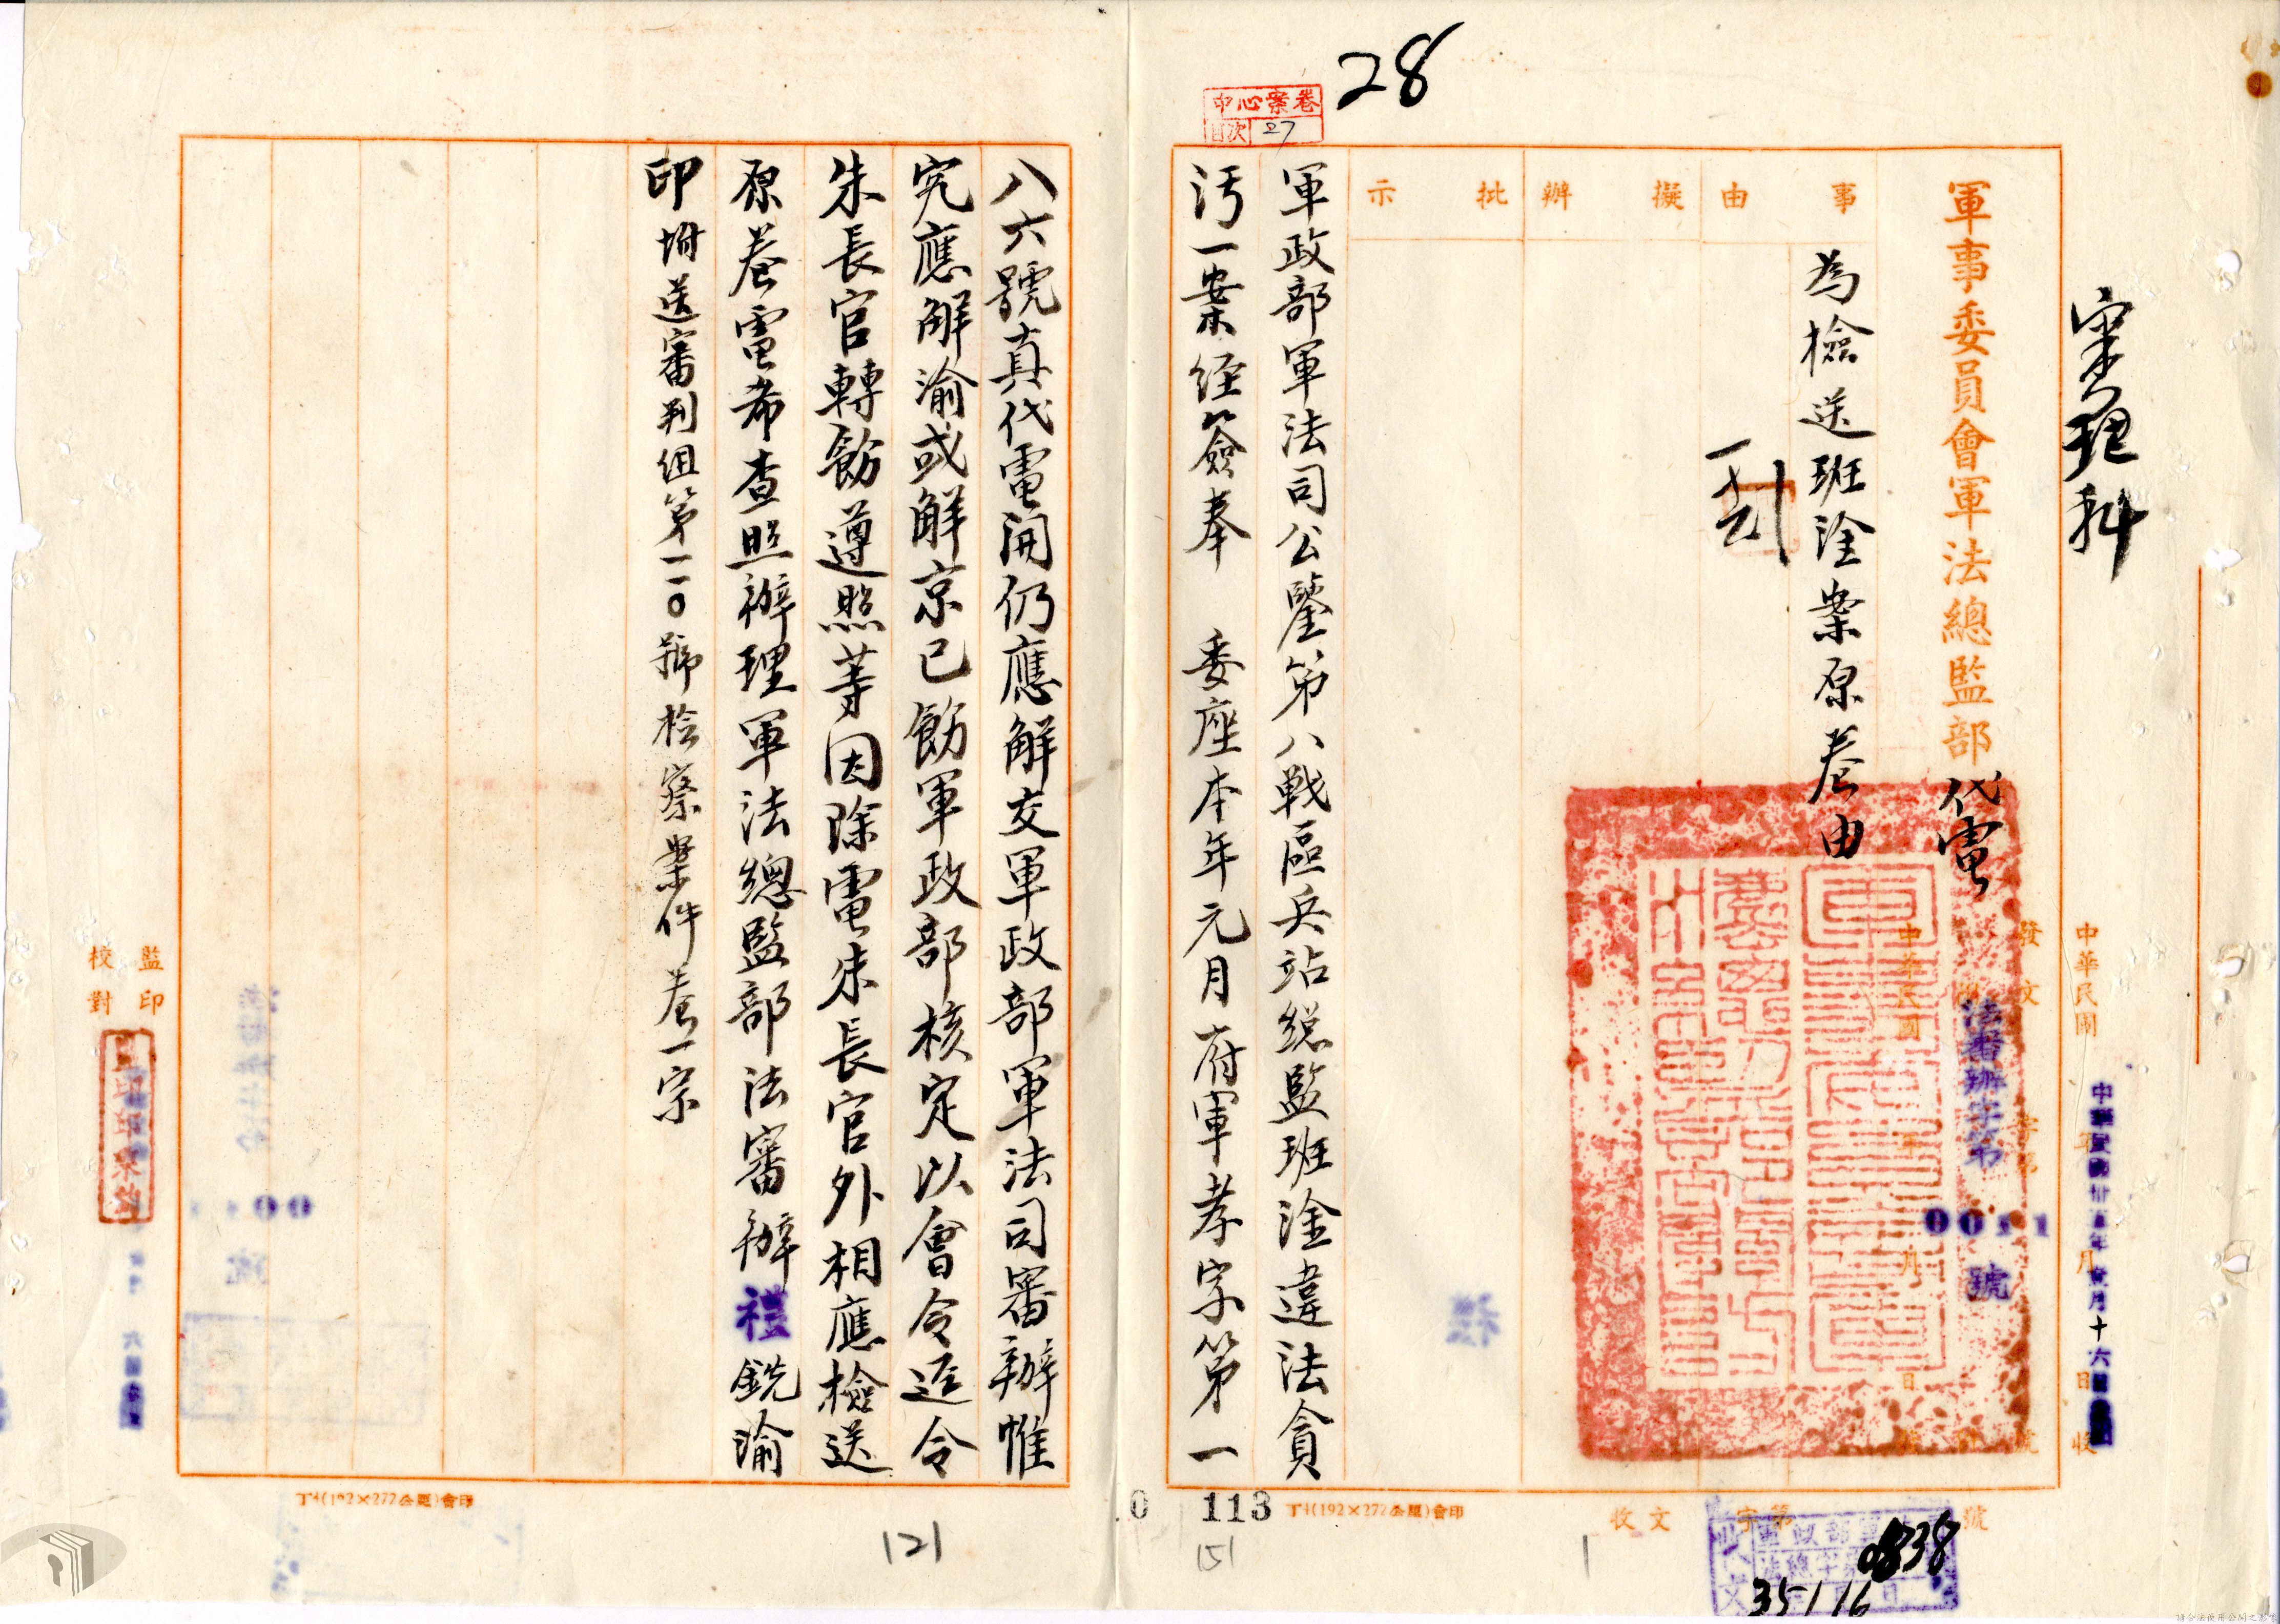 28
中心案卷
目次 27
審理科
軍事委員會軍法總監部代電
事由
擬辦
批示
為檢送班淦案原卷由
中華民國 年 月 日收
中華民國卅五年元月十六日
發文 字第 號
法審辦字第0011號
中華民國 年 月 日
軍政部軍法司公鑒第八戰區兵站總監班淦違法貪
污一案經簽奉 委座本年元月府軍孝字第一
八六號真代電開仍應解交軍政部軍法司審辦惟
究應解渝或解京已飭軍政部核定以會令逕令
朱長官轉飭遵照等因除電朱長官外相應檢送
原卷電希查照辦理軍法總監部法審辦禮銑渝
印附送審判組第一一〇號檢察案件卷一宗
監印
校對
丁4(192×277公厘)會印
丁4(192×277公厘)會印
0 113
121
151
收文 字第 號
0838
35 1 16